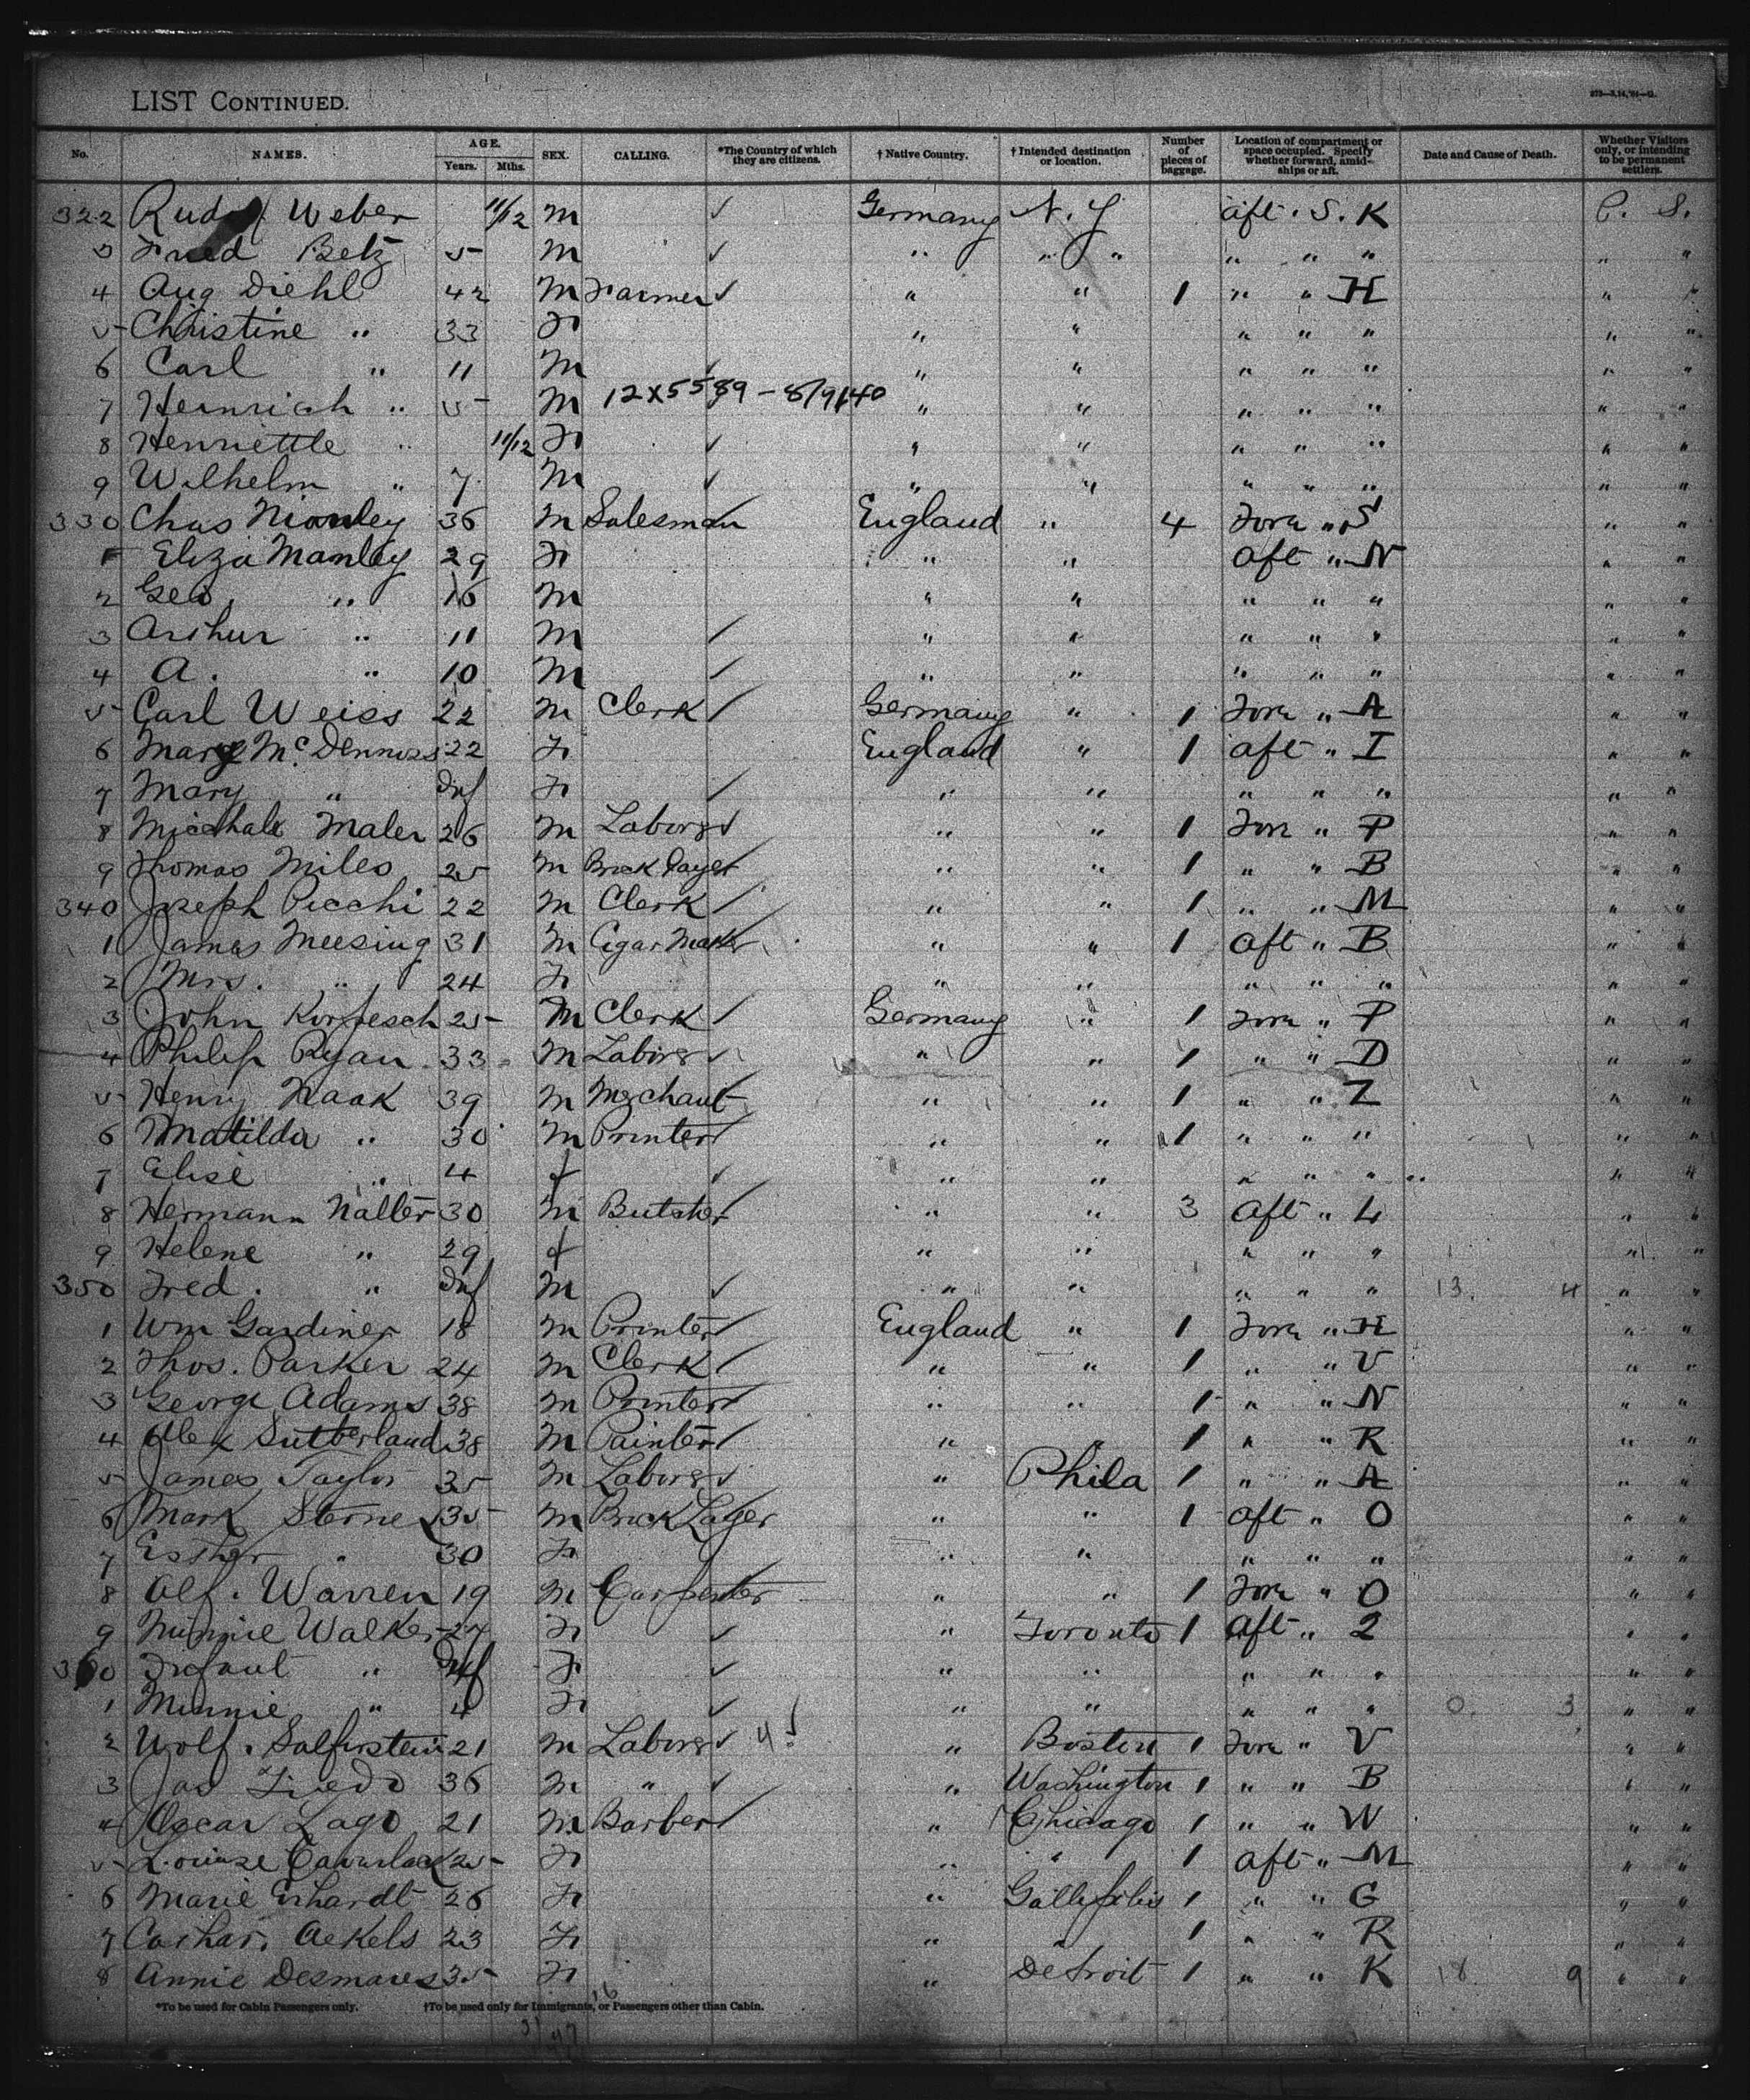 LIST CONTINUED.
No. NAMES. AGE. Years. Mths. SEX. CALLING. *The Country of which they are citizens. † Native Country. † Intended destination or location. Number of pieces of baggage. Location of compartment or space occupied. Specify whether forward, amidships or aft. Date and Cause of Death. Whether Visitors only, or intending to be permanent settlers.
322 Weber 11/12 M ✓ Germany N. Y aft. S. K P. S.
3 Fred Betz 5 M ✓ " " " " " " " "
4 Aug Diehl 42 M Farmer ✓ " " 1 " " H " "
5 Christine " 33 F " " " " " " "
6 Carl " 11 M ✓ " " " " " " "
7 Heinrich " 5 M 12X5589 - 8/9/40 " " " " " " "
8 Henriettle " 11/12 F ✓ " " " " " " "
9 Wilhelm " 7 M ✓ " " " " " " "
330 Chas Manley 36 M Salesman England " 4 Forw " S " "
1 Eliza Manley 29 F " " aft " N " "
2 Geo. " 16 M " " " " " " "
3 Arthur " 11 M ✓ " " " " " " "
4 A. " 10 M ✓ " " " " " " "
5 Carl Weiss 22 M Clerk ✓ Germany " 1 Forw " A " "
6 Mary 22 F England " 1 aft " I " "
7 Mary " Inf F ✓ " " " " " " "
8 Maler 26 M Laborer ✓ " " 1 Forw " P " "
9 Thomas Miles 25 M Brick Layer ✓ " " 1 " " B " "
340 Joseph Picchi 22 M Clerk ✓ " " 1 " " M " "
1 James Meesing 31 M Cigar Maker " " 1 aft " B " "
2 Mrs. " 24 F " " " " " " "
3 John 25 M Clerk ✓ Germany " 1 Forw " P " "
4 Philip Ryan 33 M Laborer ✓ " " 1 " " D " "
5 Henry Naak 39 M Merchant " " 1 " " Z " "
6 Matilda " 30 M Printer ✓ " " 1 " " " " "
7 Elise " 4 f ✓ " " " " " " "
8 Hermann Naller 30 M Butcher ✓ " " 3 aft " L " "
9 Helene " 29 f " " " " " " "
350 Fred. " Inf M ✓ " " " " " 13. 4 " "
1 Wm Gardiner 18 M Printer ✓ England " 1 Forw " H " "
2 Thos. Parker 24 M Clerk ✓ " " 1 " " V " "
3 George Adams 38 M Printer ✓ " " 1 " " N " "
4 Alex Sutherland 38 M Painter ✓ " " 1 " " R " "
5 James Taylor 35 M Laborer ✓ " Phila 1 " " A " "
6 Mark Sterne 35 M Brick Layer " " 1 aft " O " "
7 Esther " 30 F " " " " " " "
8 Alf. Warren 19 M Carpenter " " 1 Forw " O " "
9 Minnie Walker 24 F ✓ " Toronto 1 aft " 2 " "
360 Infant " Inf F ✓ " " " " " " "
1 Minnie " 4 F ✓ " " " " " 0. 3 " "
2 Wolf. Salfirstein 21 M Laborer ✓ " Boston 1 Forw " V " "
3 36 M " ✓ " Washington 1 " " B " "
4 Oscar Lago 21 M Barber ✓ " Chicago 1 " " W " "
5 Louise 25 F " " 1 aft " M " "
6 Marie Erhardt 26 F " 1 " " G " "
7 Aekels 23 F " " 1 " " R " "
8 Annie Desmares 35 F " Detroit 1 " " K 18 9 " "
*To be used for Cabin Passengers only. †To be used only for Immigrants, or Passengers other than Cabin.